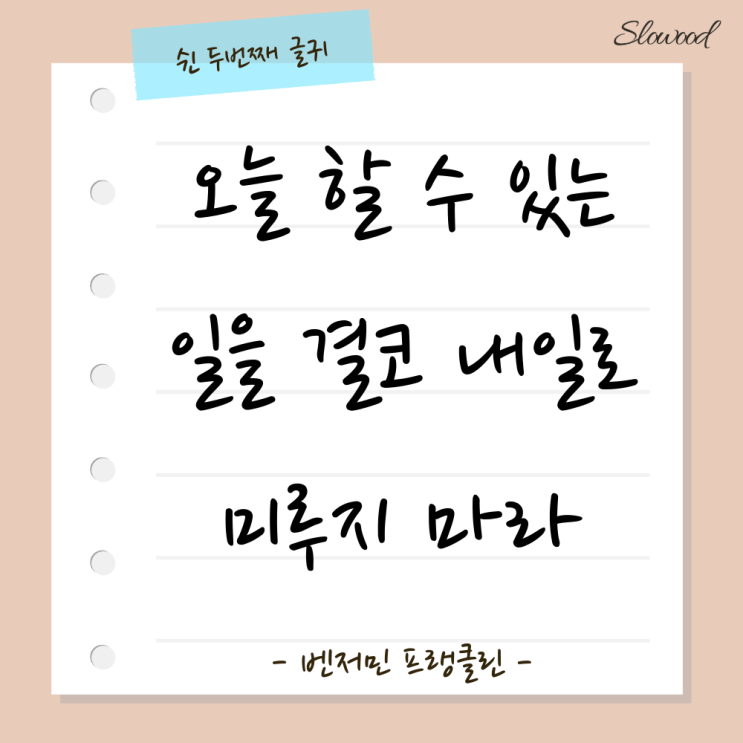 Slowood
쉰 두번째 글귀
오늘 할 수 있는
일을 결코 내일로
미루지 마라
- 벤저민 프랭클린 -